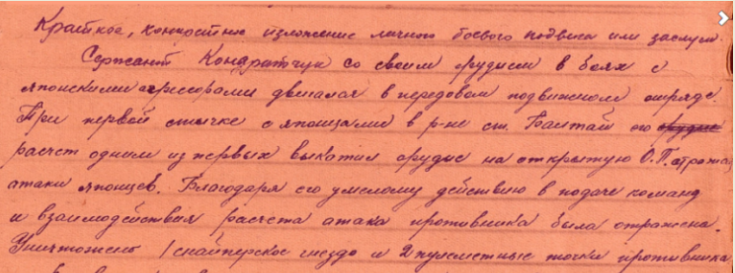 Краткое, конкретное изложение личного боевого подвига или заслуг.
Сержант Кондратчук со своим орудием в боях с
японскими агрессорами двигался в передовом подвижном отряде.
При первой стычке с японцами в р-не ст. Бантай его орудие
расчет одним из первых выкатил орудие на открытую О.П. отражая
атаки японцев. Благодаря его умелому действию в подаче команд
и взаимодействия расчета атака противника была отражена.
Уничтожено 1 снайперское гнездо и 2 пулеметные точки противника